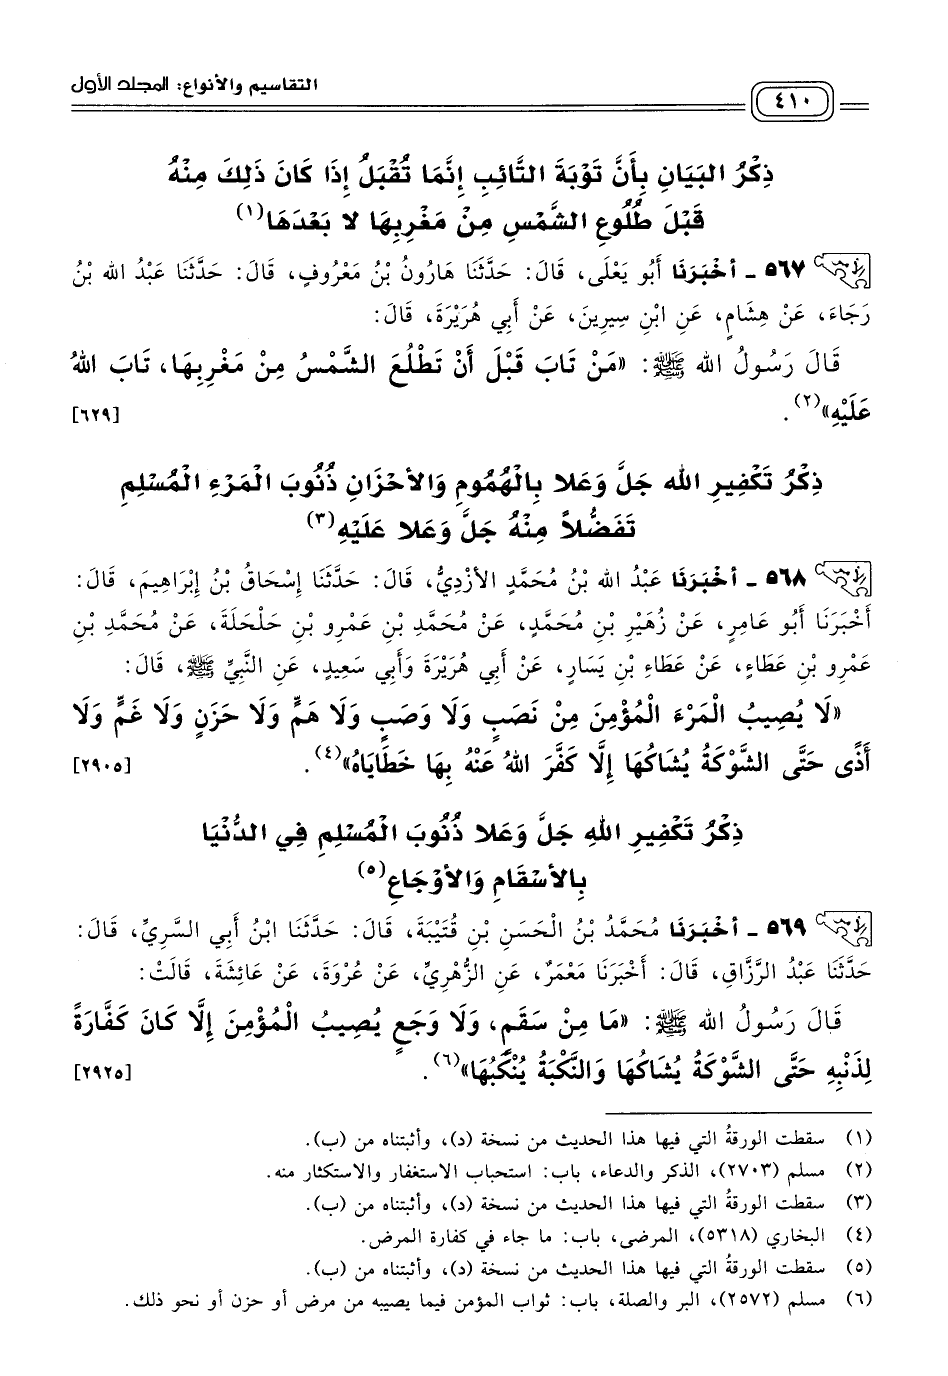 التقاسيم والأنواع: المجلد الأول
٤١٠
ذِكْرُ البَيَانِ بِأَنَّ تَوْبَةَ التَّائِبِ إِنَّمَا تُقْبَلُ إِذَا كَانَ ذَلِكَ مِنْهُ
قَبْلَ طُلُوعِ الشَّمْسِ مِنْ مَغْرِبِهَا لا بَعْدَهَا(١)
٥٦٧ - أَخْبَرَنَا أَبُو يَعْلَى، قَالَ: حَدَّثَنَا هَارُونُ بْنُ مَعْرُوفٍ، قَالَ: حَدَّثَنَا عَبْدُ الله بْنُ
رَجَاءَ، عَنْ هِشَامٍ، عَنِ ابْنِ سِيرِينَ، عَنْ أَبِي هُرَيْرَةَ، قَالَ:
قَالَ رَسُولُ الله ﷺ: «مَنْ تَابَ قَبْلَ أَنْ تَطْلُعَ الشَّمْسُ مِنْ مَغْرِبِهَا، تَابَ اللهُ
عَلَيْهِ»(٢). [٦٢٩]
ذِكْرُ تَكْفِيرِ الله جَلَّ وَعَلا بِالْهُمُومِ وَالأَحْزَانِ ذُنُوبَ الْمَرْءِ الْمُسْلِمِ
تَفَضُّلاً مِنْهُ جَلَّ وَعَلا عَلَيْهِ(٣)
٥٦٨ - أَخْبَرَنَا عَبْدُ الله بْنُ مُحَمَّدٍ الأَزْدِيُّ، قَالَ: حَدَّثَنَا إِسْحَاقُ بْنُ إِبْرَاهِيمَ، قَالَ:
أَخْبَرَنَا أَبُو عَامِرٍ، عَنْ زُهَيْرِ بْنِ مُحَمَّدٍ، عَنْ مُحَمَّدِ بْنِ عَمْرِو بْنِ حَلْحَلَةَ، عَنْ مُحَمَّدِ بْنِ
عَمْرِو بْنِ عَطَاءٍ، عَنْ عَطَاءِ بْنِ يَسَارٍ، عَنْ أَبِي هُرَيْرَةَ وَأَبِي سَعِيدٍ، عَنِ النَّبِيِّ ﷺ، قَالَ:
«لَا يُصِيبُ الْمَرْءَ الْمُؤْمِنَ مِنْ نَصَبٍ وَلَا وَصَبٍ وَلَا هَمٍّ وَلَا حَزَنٍ وَلَا غَمٍّ وَلَا
أَذًى حَتَّى الشَّوْكَةُ يُشَاكُهَا إِلَّا كَفَّرَ اللهُ عَنْهُ بِهَا خَطَايَاهُ»(٤). [٢٩٠٥]
ذِكْرُ تَكْفِيرِ اللهِ جَلَّ وَعَلا ذُنُوبَ الْمُسْلِمِ فِي الدُّنْيَا
بِالأَسْقَامِ وَالأَوْجَاعِ(٥)
٥٦٩ - أَخْبَرَنَا مُحَمَّدُ بْنُ الْحَسَنِ بْنِ قُتَيْبَةَ، قَالَ: حَدَّثَنَا ابْنُ أَبِي السَّرِيِّ، قَالَ:
حَدَّثَنَا عَبْدُ الرَّزَّاقِ، قَالَ: أَخْبَرَنَا مَعْمَرٌ، عَنِ الزُّهْرِيِّ، عَنْ عُرْوَةَ، عَنْ عَائِشَةَ، قَالَتْ:
قَالَ رَسُولُ الله ﷺ: «مَا مِنْ سَقَمٍ، وَلَا وَجَعٍ يُصِيبُ الْمُؤْمِنَ إِلَّا كَانَ كَفَّارَةً
لِذَنْبِهِ حَتَّى الشَّوْكَةُ يُشَاكُهَا وَالنَّكْبَةُ يُنْكَبُهَا»(٦). [٢٩٢٥]
(١) سقطت الورقةُ التي فيها هذا الحديث من نسخة (د)، وأثبتناه من (ب).
(٢) مسلم (٢٧٠٣)، الذكر والدعاء، باب: استحباب الاستغفار والاستكثار منه.
(٣) سقطت الورقةُ التي فيها هذا الحديث من نسخة (د)، وأثبتناه من (ب).
(٤) البخاري (٥٣١٨)، المرضى، باب: ما جاء في كفارة المرض.
(٥) سقطت الورقةُ التي فيها هذا الحديث من نسخة (د)، وأثبتناه من (ب).
(٦) مسلم (٢٥٧٢)، البر والصلة، باب: ثواب المؤمن فيما يصيبه من مرض أو حزن أو نحو ذلك.